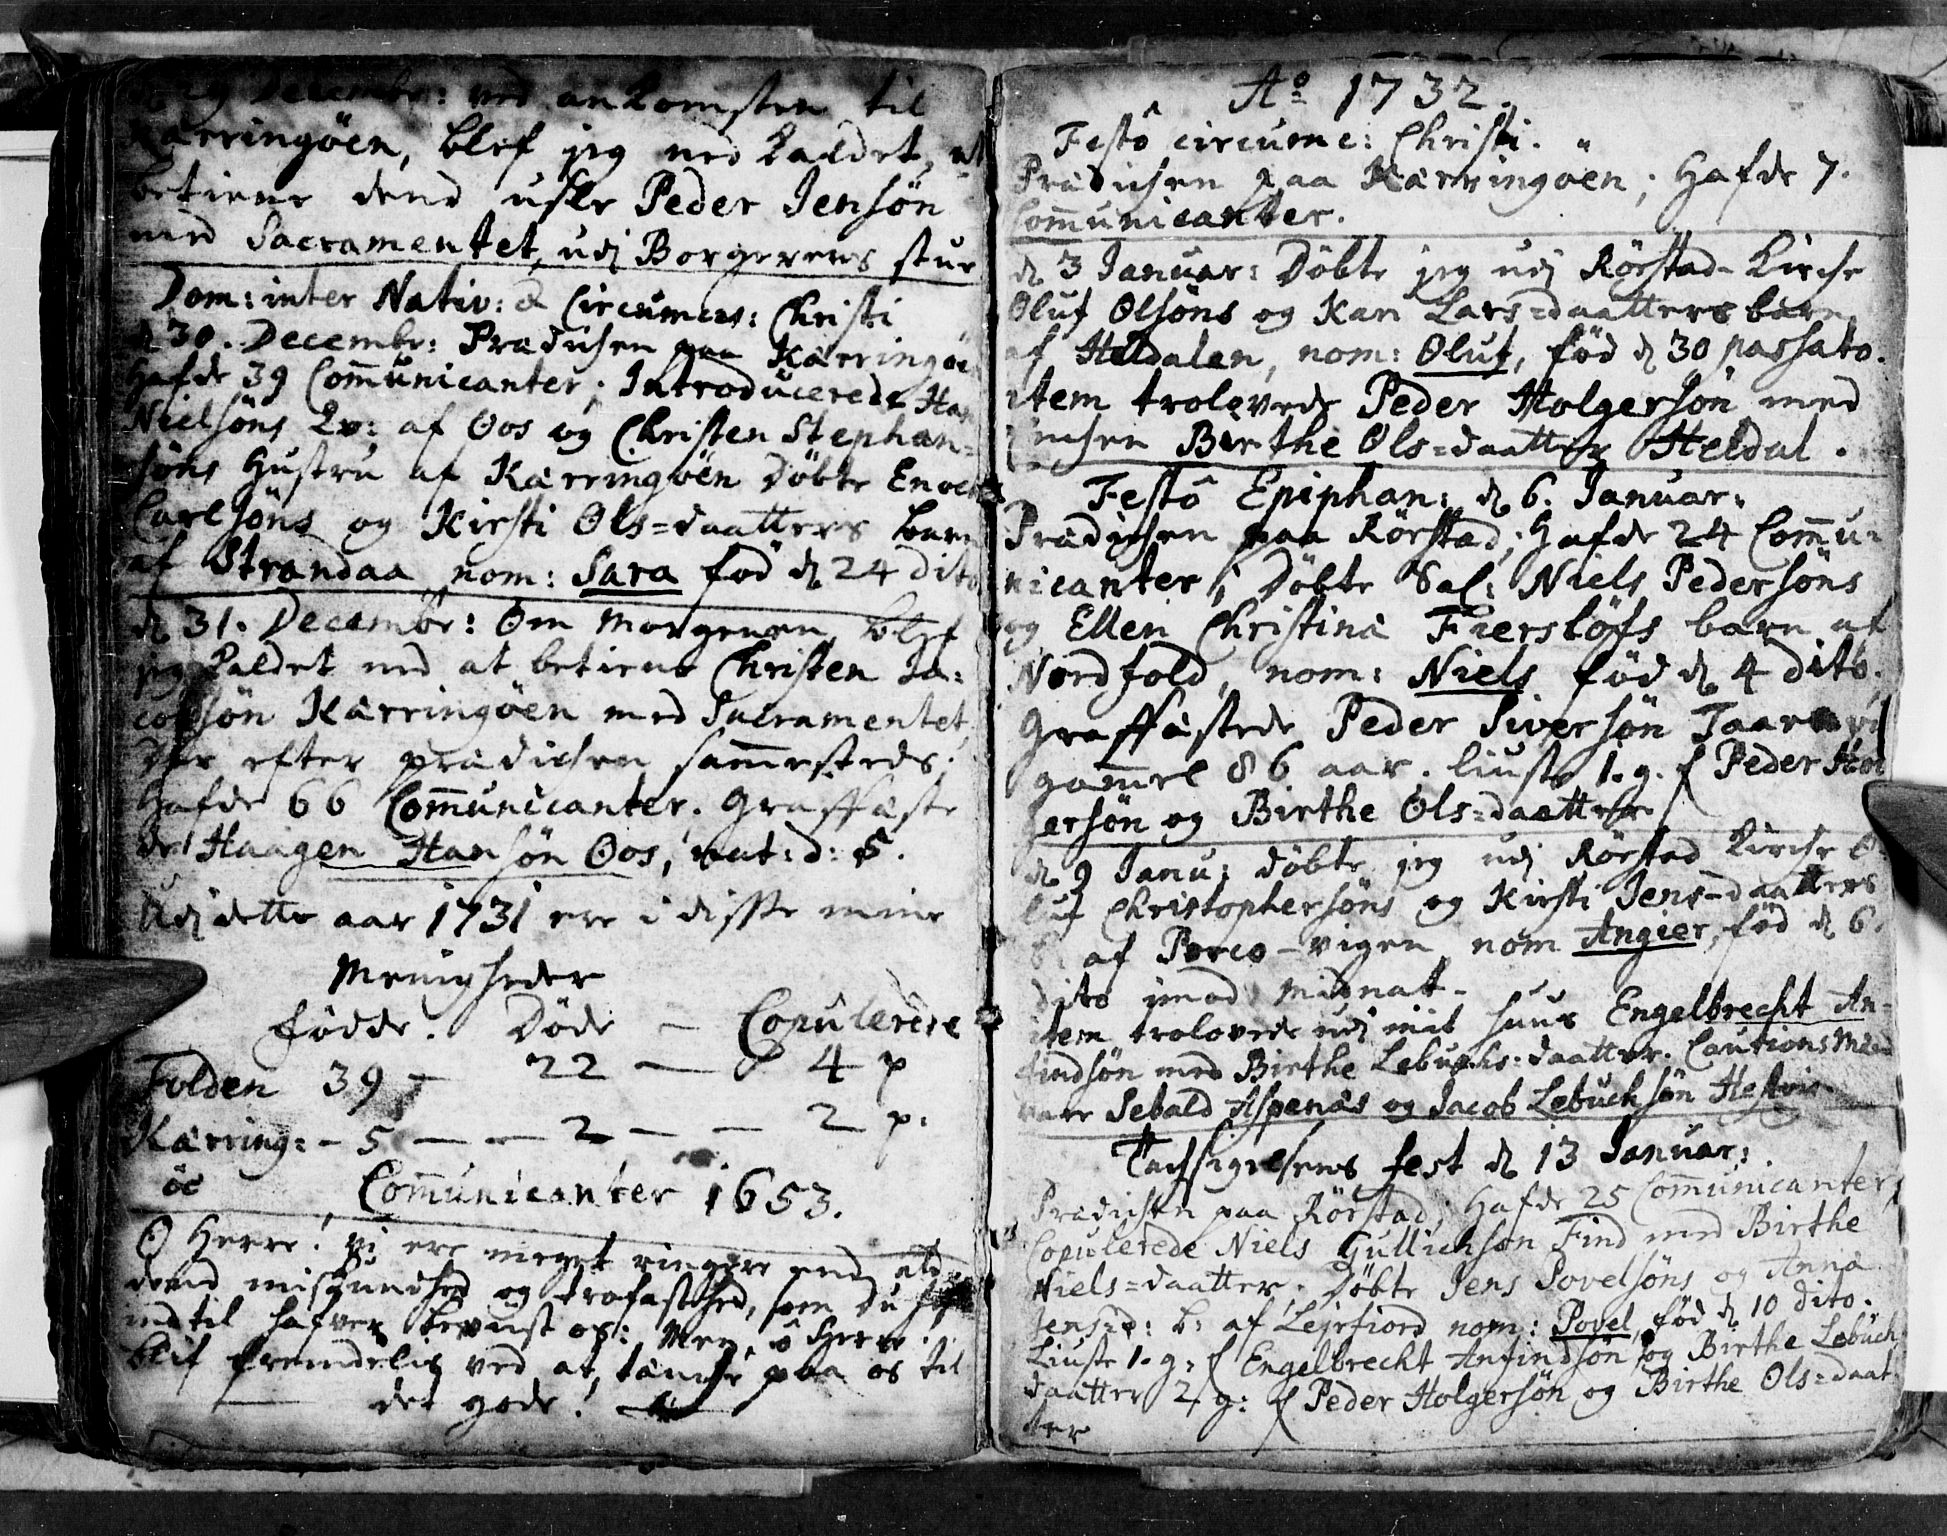 29 Decembr: ved ankomsten til
Kærringöen, blef jeg ned kaldet, at
betiene dend usle Peder Jensön
med Sacramentet, udj Borgerens stue
Dom: inter Nativ: & Circumcis: Christi
d 30. Decembr: Prædichen paa Kærringöe
Hafde 39 Com̄unicanter; Introducerede Han
Nielsöns Qv: af Oos og Christen Stephan-
söns Hustru af Kærringöen Döbte Enoch
Carlsöns og Kirsti Ols=daatters barn
af Strandaa nom: Sara föd d 24 dito
d 31. Decembr: Om Morgenen blef
jeg kaldet ned at betiene Christen Ja:
cobsön Kærringöen med Sacramentet,
Der efter prædichen sam̄esteds;
Hafde 66 Com̄unicanter. Graffæste
de Haagen Hansön Oos, nat: d: 5.
Udj dette aar 1731 ere i disse mine
Menigheder
födde. Döde — Copulerede
Folden 39 — 22 — 4 p
Kærring: - 5 — — 2 — — 2 p:
öe
Com̄unicanter 1653.
O Herre! vi ere meget ringere end ald
dend miskundhed og trofasthed, som du her
indtil hafver beviist os: Men, ô Herre
blif fremdelis ved at tænche paa os til
det gode!
Aº 1732.
Festô circumc: Christi.
Prædichen paa Kærringöen; Hafde 7.
Com̄unicanter.
d 3 Januar: Döbte jeg udj Rörstad-Kirche
Oluf Olsöns og Kari Lars=daatters barn
af Heldalen, nom: Oluf, föd d 30 passato.
item trolovede Peder Holgersön med
Pichen Birthe Ols=daatter Heldal.
Festô Epiphan: d 6. Januar:
Prædichen paa Rörstad; Hafde 24 Com̄u-
nicanter; Döbte Sal: Niels Pedersöns
og Ellen Christina Fierslöfs barn af
Nordfold, nom: Niels föd d 4 dito.
Graffæstede Peder Siversön Taarnvi
gam̄el 86 aar. liuste 1. g. f Peder Hol
gersön og Birthe Ols=daatter
d 9 Janu: döbte jeg udj Rörstad Kirche O-
luf Christophersöns og Kirsti Jens-daatters
B: af Porco-vigen nom Angier, föd d 6.
dito imod midnat.
item trolovede udj mit huus Engelbrecht An-
findsön med Birthe Lebuchs-daatter. Cautions Mænd
vare Sebald Aspenæs og Jacob Lebuchsön Hestvi
Tachsigelsens fest d 13 Januar:
Prædichen paa Rörstad; Hafde 25 Com̄unicanter
Copulerede Niels Gullichsön Find med Birthe
Niels=daatter. Döbte Jens Povelsöns og Anna
Jensd: b: af Lejrfiord nom: Povel, föd d 10 dito.
Liuste 1. g: f Engelbrecht Anfindsön og Birthe Lebuch
daatter 2 g: f Peder Holgersön og Birthe Ols=daat
ter